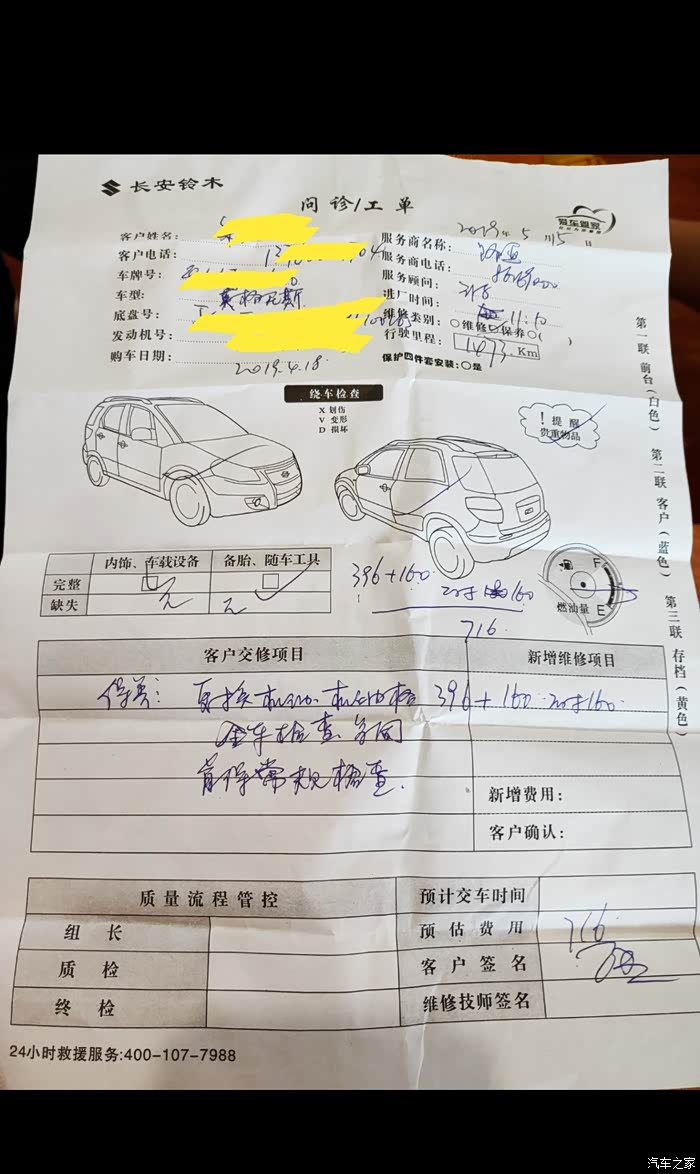 长安铃木
问诊/工单
爱车管家
2019年5月15日
客户姓名:
客户电话:
车牌号:
车型:
底盘号:
发动机号:
购车日期: 2019.4.18
服务商名称:
服务商电话:
服务顾问:
进厂时间: 11:10
维修类别: 维修 保养
行驶里程: Km
保护四件套安装: 是
绕车检查
X 划伤
V 变形
D 损坏
! 提醒
贵重物品
内饰、车载设备 备胎、随车工具
完整
缺失 无 无
396+160
工时160
716.
F
燃油量 E
客户交修项目 新增维修项目
保养: 更换机油.机油格 396+160.工时160.
全车检查
首保常规检查.
新增费用:
客户确认:
质量流程管控 预计交车时间
组长 预估费用 716.
质检 客户签名
终检 维修技师签名
24小时救援服务:400-107-7988
第一联 前台(白色) 第二联 客户(蓝色) 第三联 存档(黄色)
汽车之家